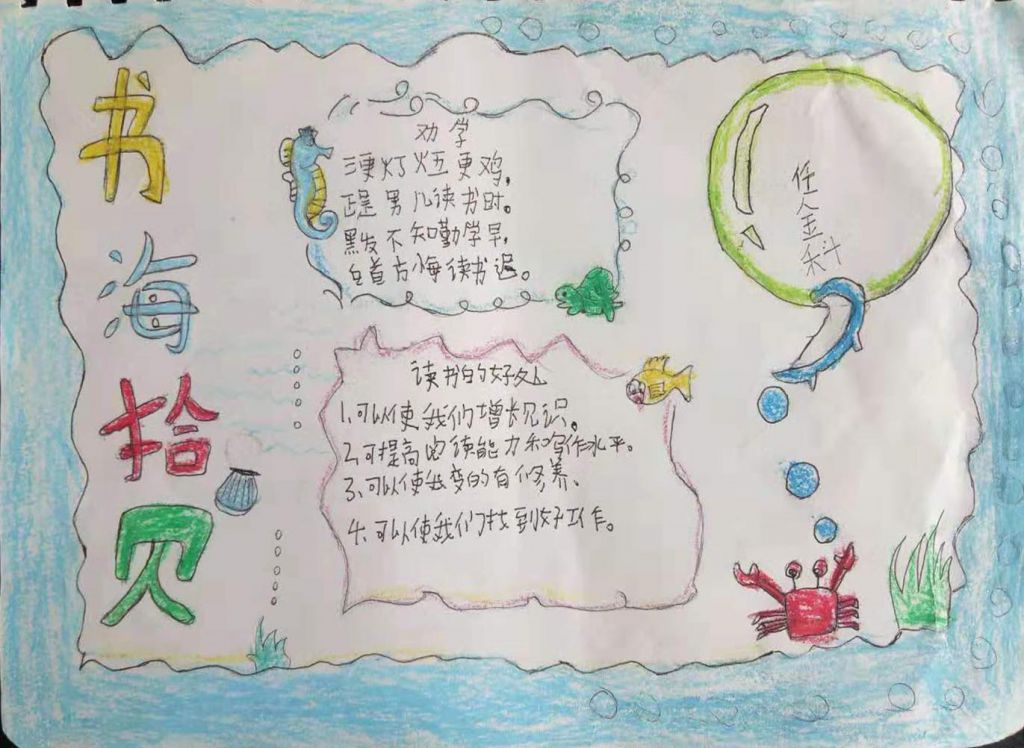 书海拾贝
劝学
三更灯火五更鸡，
正是男儿读书时。
黑发不知勤学早，
白首方悔读书迟。
读书的好处
1.可以使我们增长见识。
2.可提高阅读能力和写作水平。
3.可以使我变的有修养、
4.可以使我们找到好工作。
任金科